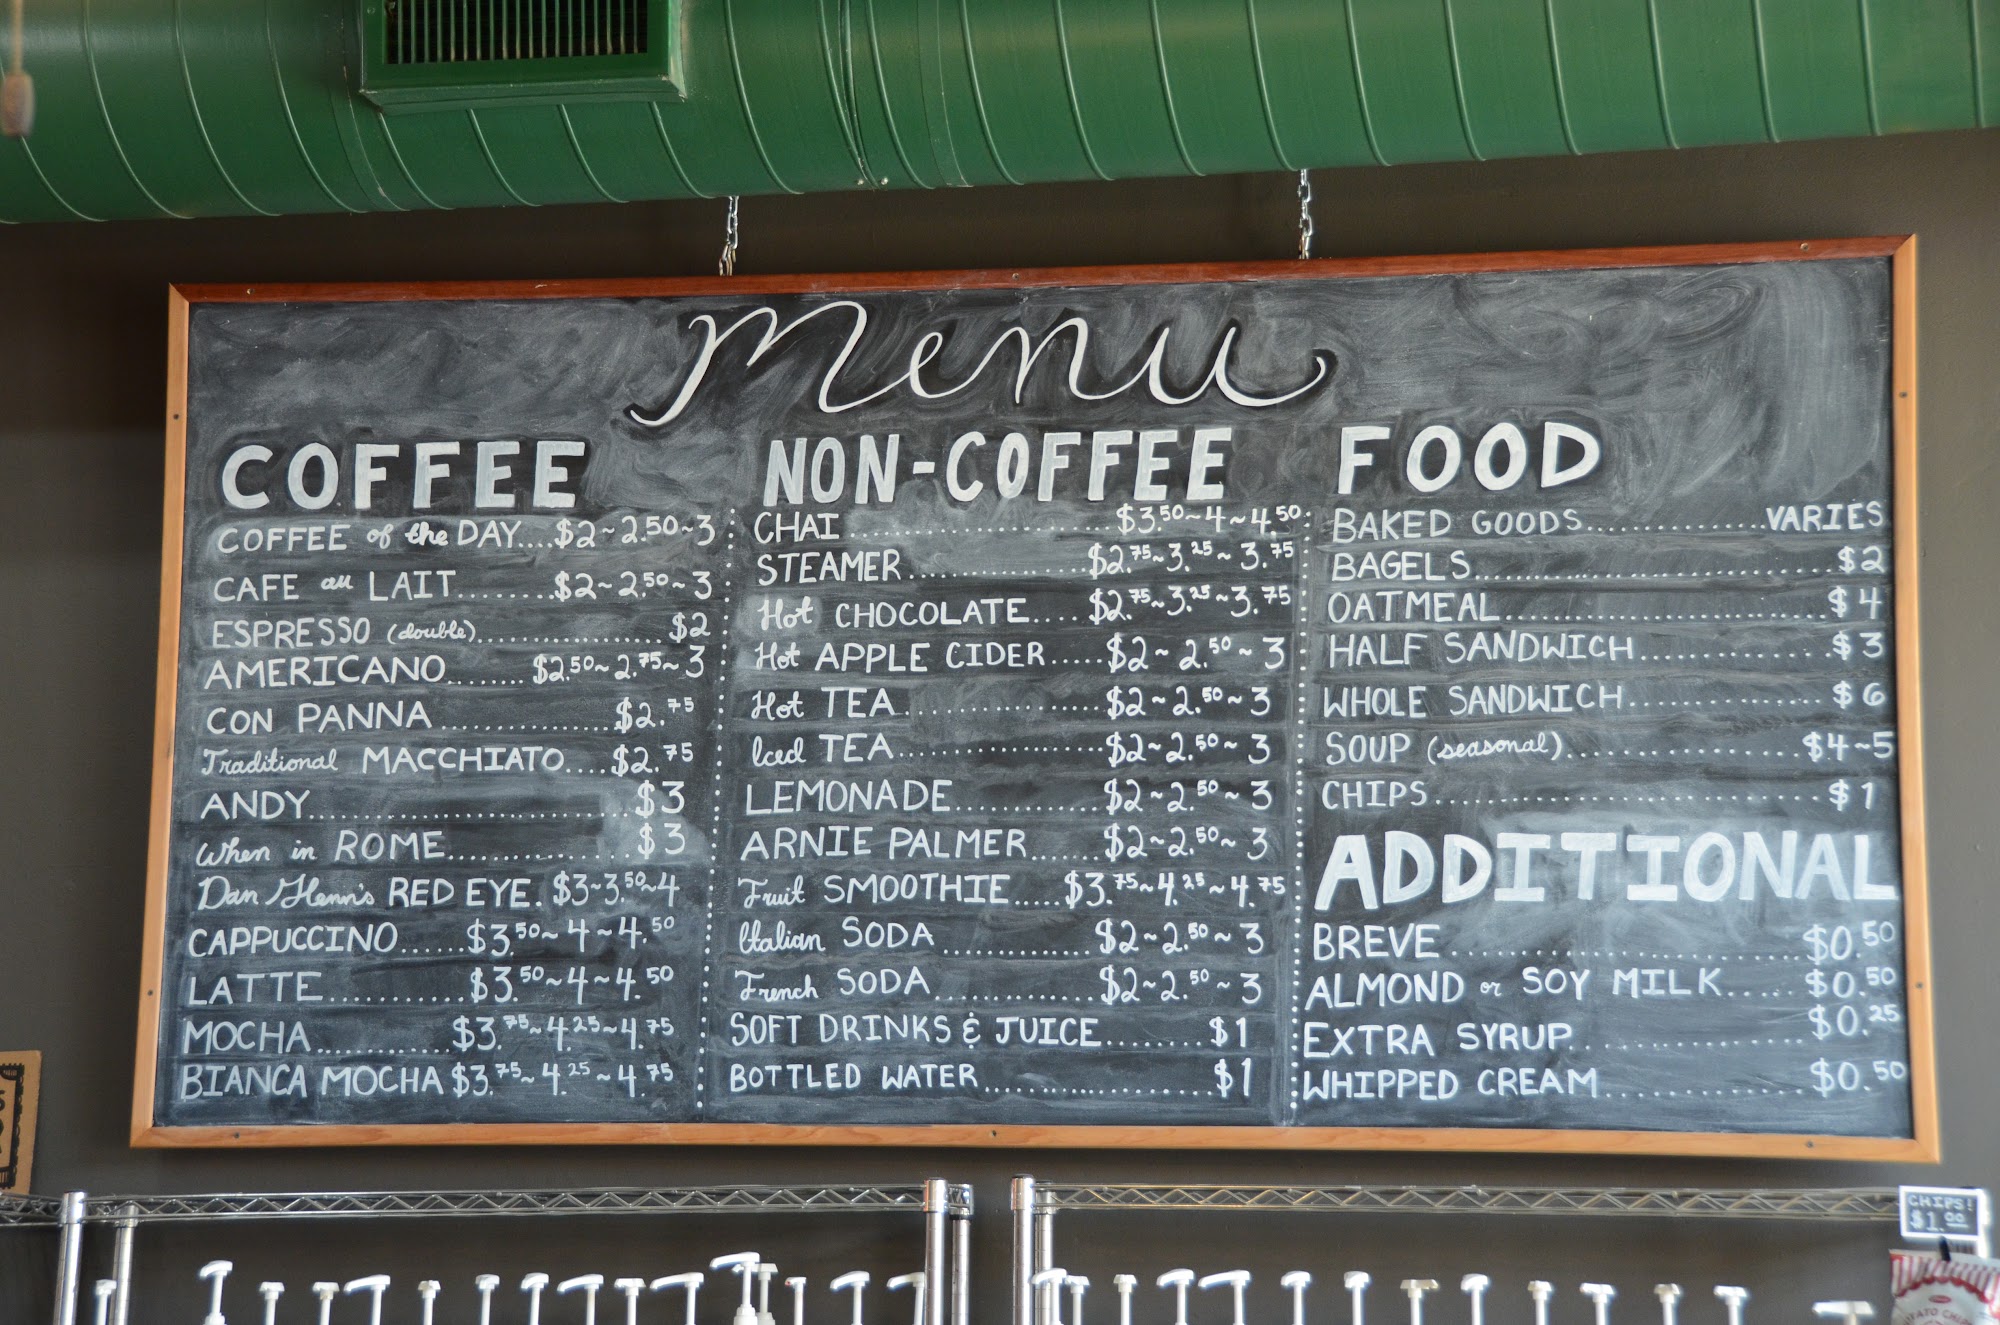 Menu
COFFEE
COFFEE of the DAY....$2~2.50~3
CAFE au LAIT........$2~2.50~3
ESPRESSO (double)................$2
AMERICANO........$2.50~2.75~3
CON PANNA..................$2.75
Traditional MACCHIATO....$2.75
ANDY....................................$3
When in ROME....................$3
Dan Glenn's RED EYE.$3~3.50~4
CAPPUCCINO......$3.50~4~4.50
LATTE............$3.50~4~4.50
MOCHA............$3.75~4.25~4.75
BIANCA MOCHA $3.75~4.25~4.75
NON-COFFEE
CHAI........................$3.50~4~4.50
STEAMER................$2.75~3.25~3.75
Hot CHOCOLATE....$2.75~3.25~3.75
Hot APPLE CIDER.....$2~2.50~3
Hot TEA..................$2~2.50~3
Iced TEA..................$2~2.50~3
LEMONADE..............$2~2.50~3
ARNIE PALMER.......$2~2.50~3
Fruit SMOOTHIE.....$3.75~4.25~4.75
Italian SODA..............$2~2.50~3
French SODA..............$2~2.50~3
SOFT DRINKS & JUICE........$1
BOTTLED WATER....................$1
FOOD
BAKED GOODS..................VARIES
BAGELS....................................$2
OATMEAL................................$4
HALF SANDWICH..................$3
WHOLE SANDWICH..................$6
SOUP (seasonal)....................$4~5
CHIPS....................................$1
ADDITIONAL
BREVE............................$0.50
ALMOND or SOY MILK.....$0.50
EXTRA SYRUP..................$0.25
WHIPPED CREAM................$0.50
CHIPS!
$1.00